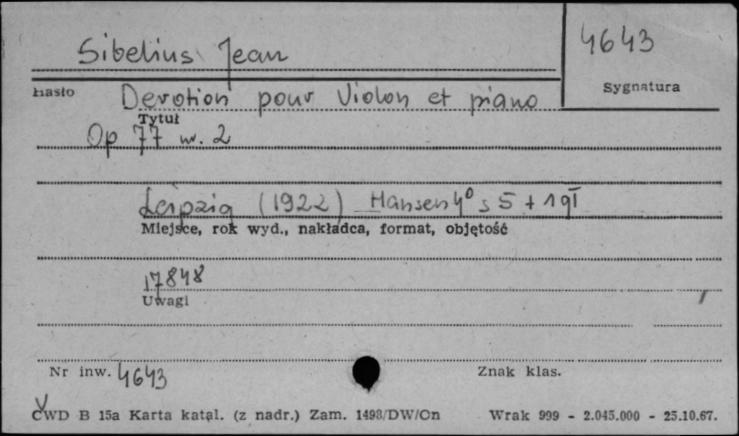 Sibelius Jean
4643
Hasło
Sygnatura
Devotion pour Violon et piano
Tytuł
Op 77 nr. 2
Leipzig (1922) Hansen 4⁰ s 5 + 1 gł
Miejsce, rok wyd., nakładca, format, objętość
17848
Uwagi
Nr inw. 4643
Znak klas.
CWD B 15a Karta katal. (z nadr.) Zam. 1498/DW/Cn Wrak 999 - 2.045.000 - 25.10.67.